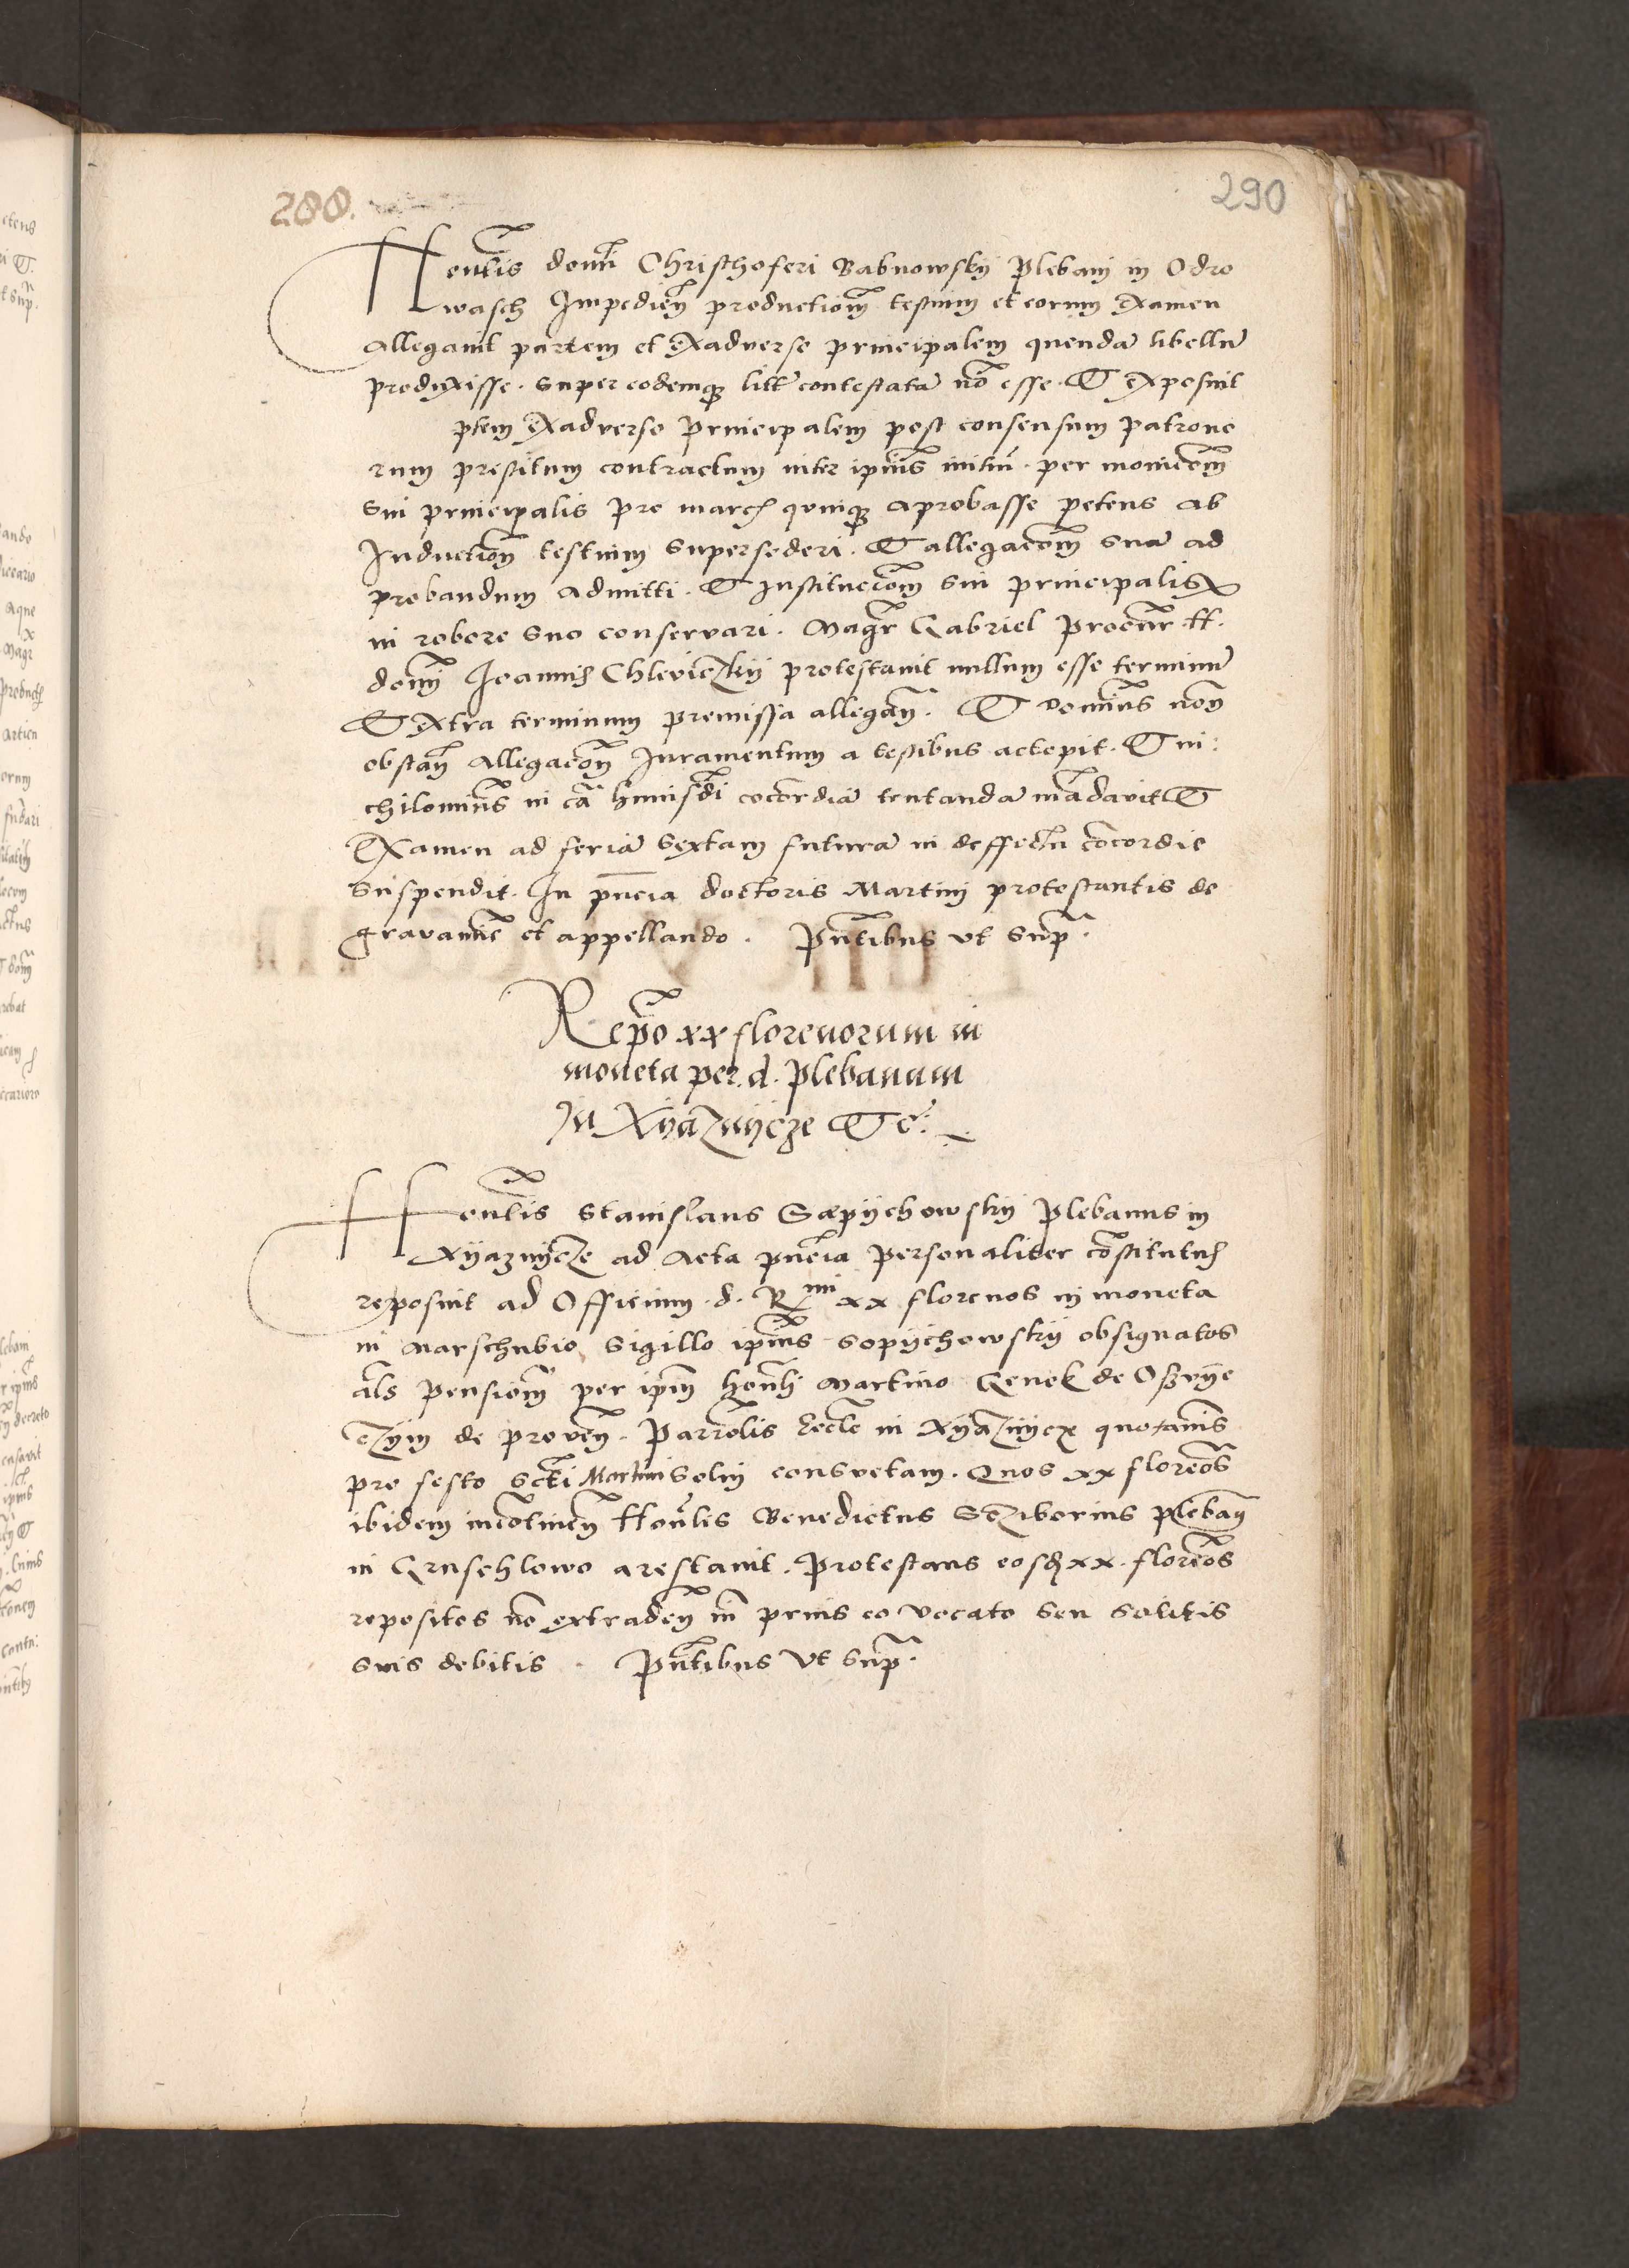 288.
290
Honlis domi Christhoferi Babnowsky Plebani in Odro
wasch Impedien productiom testium et eorum Examen
Allegavit partem et Exadverso principalem quendā libellū
produxisse. Super eodemque litt contestatā nō esse. Et Exposuit
ptem Exadverso Principalem post consensum patrono
rum prestitum contractum inter ipsius initum per moniciom
Sui principalis pro march quinque Aprobasse petens Ab
Inductiom testium Supersederi. Et allegaciom Suā ad
probandum Admitti. Et Instituciom Sui principalis
in robore Suo conservari. Magr Gabriel Procur H.
domi Joannis Chleviczky protestavit nullum esse terminū
Et Extra terminum premissa allegari. Et Dominus non
obstan Allegaciom Juramentum a testibus accepit. Et ni:
chilominus in cā huiusdi cōcordiā tentandā mādavit Et
Examen ad feriā Sextam futurā in deffectu cōcordie
Suspendit. In pncia doctoris Martini protestantis de
gravamie et appellando. Pntibus ut Supª.
Repō xx florenorum in
moneta per d. Plebanum
In Xyaznycze Etc.
Honlis Stanislaus Sopychowsky Plebanus in
Xyaznycze ad Acta pncia Personaliter cōstitutus
reposuit ad Officium d. Rmi xx florenos in moneta
in Marschubio Sigillo ipsius Sopychowsky obsignatos
als Pensiom per ipm honli Martino Genek de Oszvye
czym de proven. Parrolis Eccle in Xyaznycz quotannis
pro festo Scti Martini Solui consuetam. Quos xx florenos
ibidem incōtinen Honlis Benedictus Scziborius Plebany
in Gruschlowo arestavit. Protestans eosdem xx. florenos
repositos nō extraden ni prius eo Vocato Seu Solutis
Suis debitis. Pntibus Vt Supª.